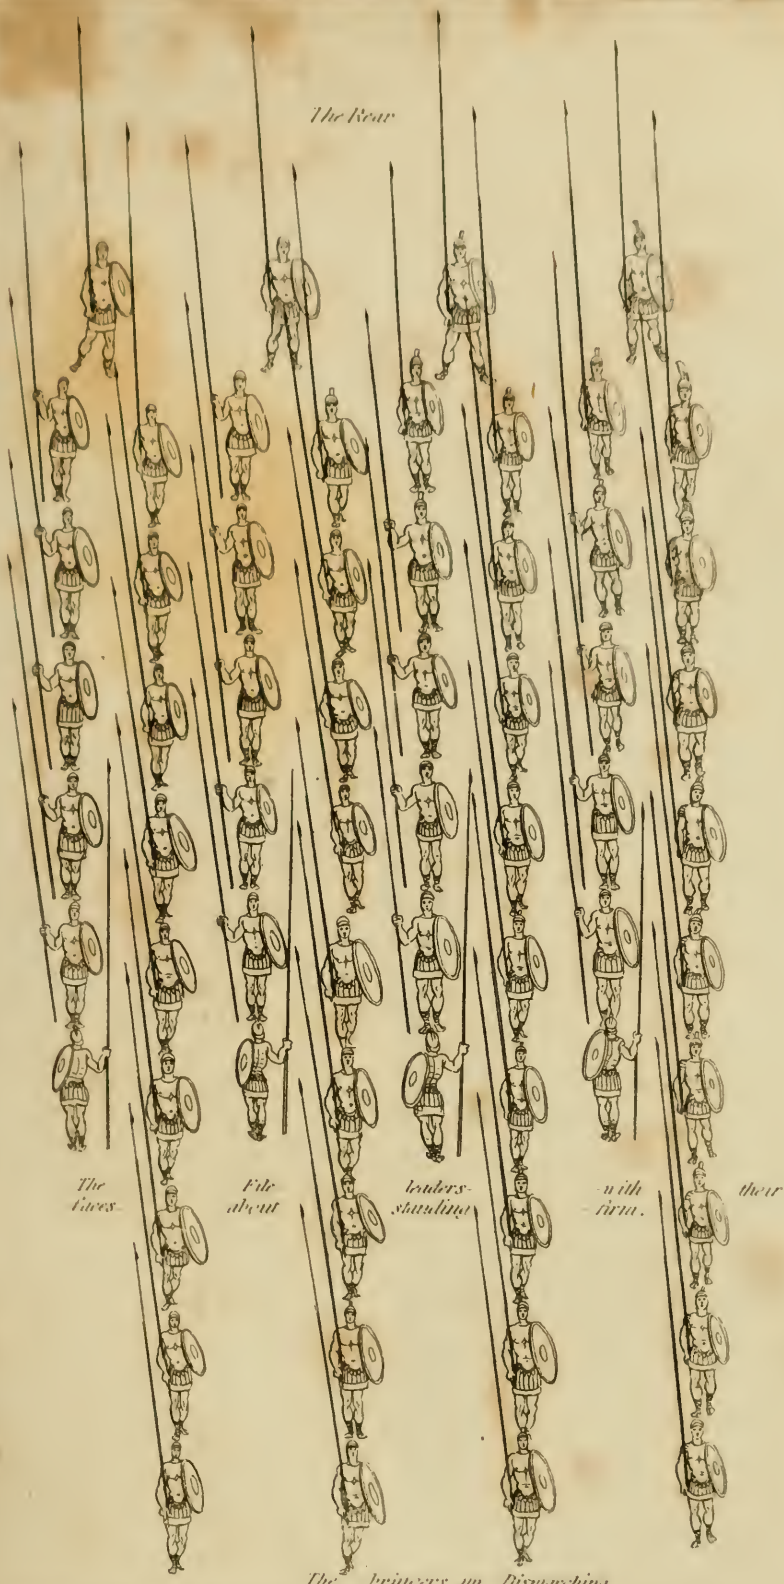 The Rear
The File leaders with their
faces about standing firm.
The bringers up Dismarching